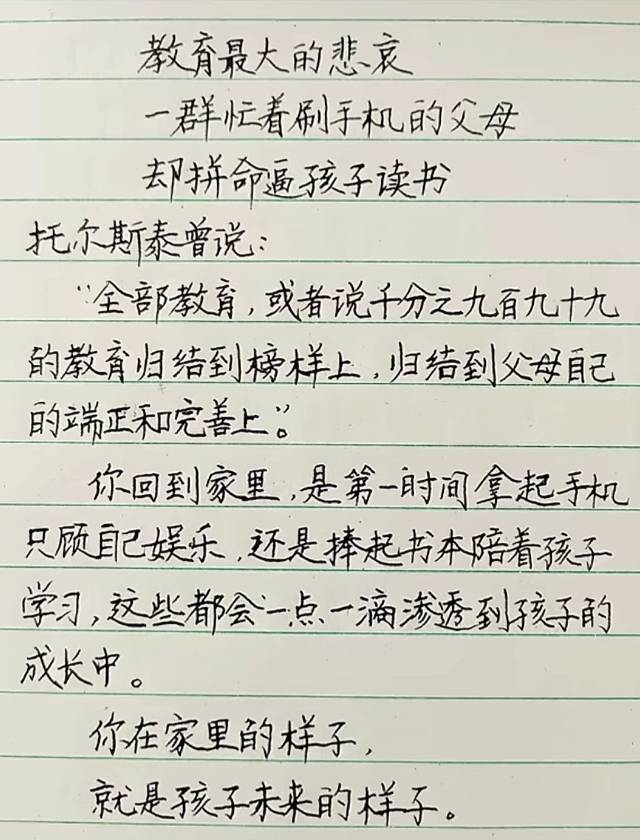 教育最大的悲哀
一群忙着刷手机的父母
却拼命逼孩子读书
托尔斯泰曾说：
“全部教育，或者说千分之九百九十九
的教育归结到榜样上，归结到父母自己
的端正和完善上”。
你回到家里，是第一时间拿起手机
只顾自己娱乐，还是捧起书本陪着孩子
学习，这些都会一点一滴渗透到孩子的
成长中。
你在家里的样子，
就是孩子未来的样子。